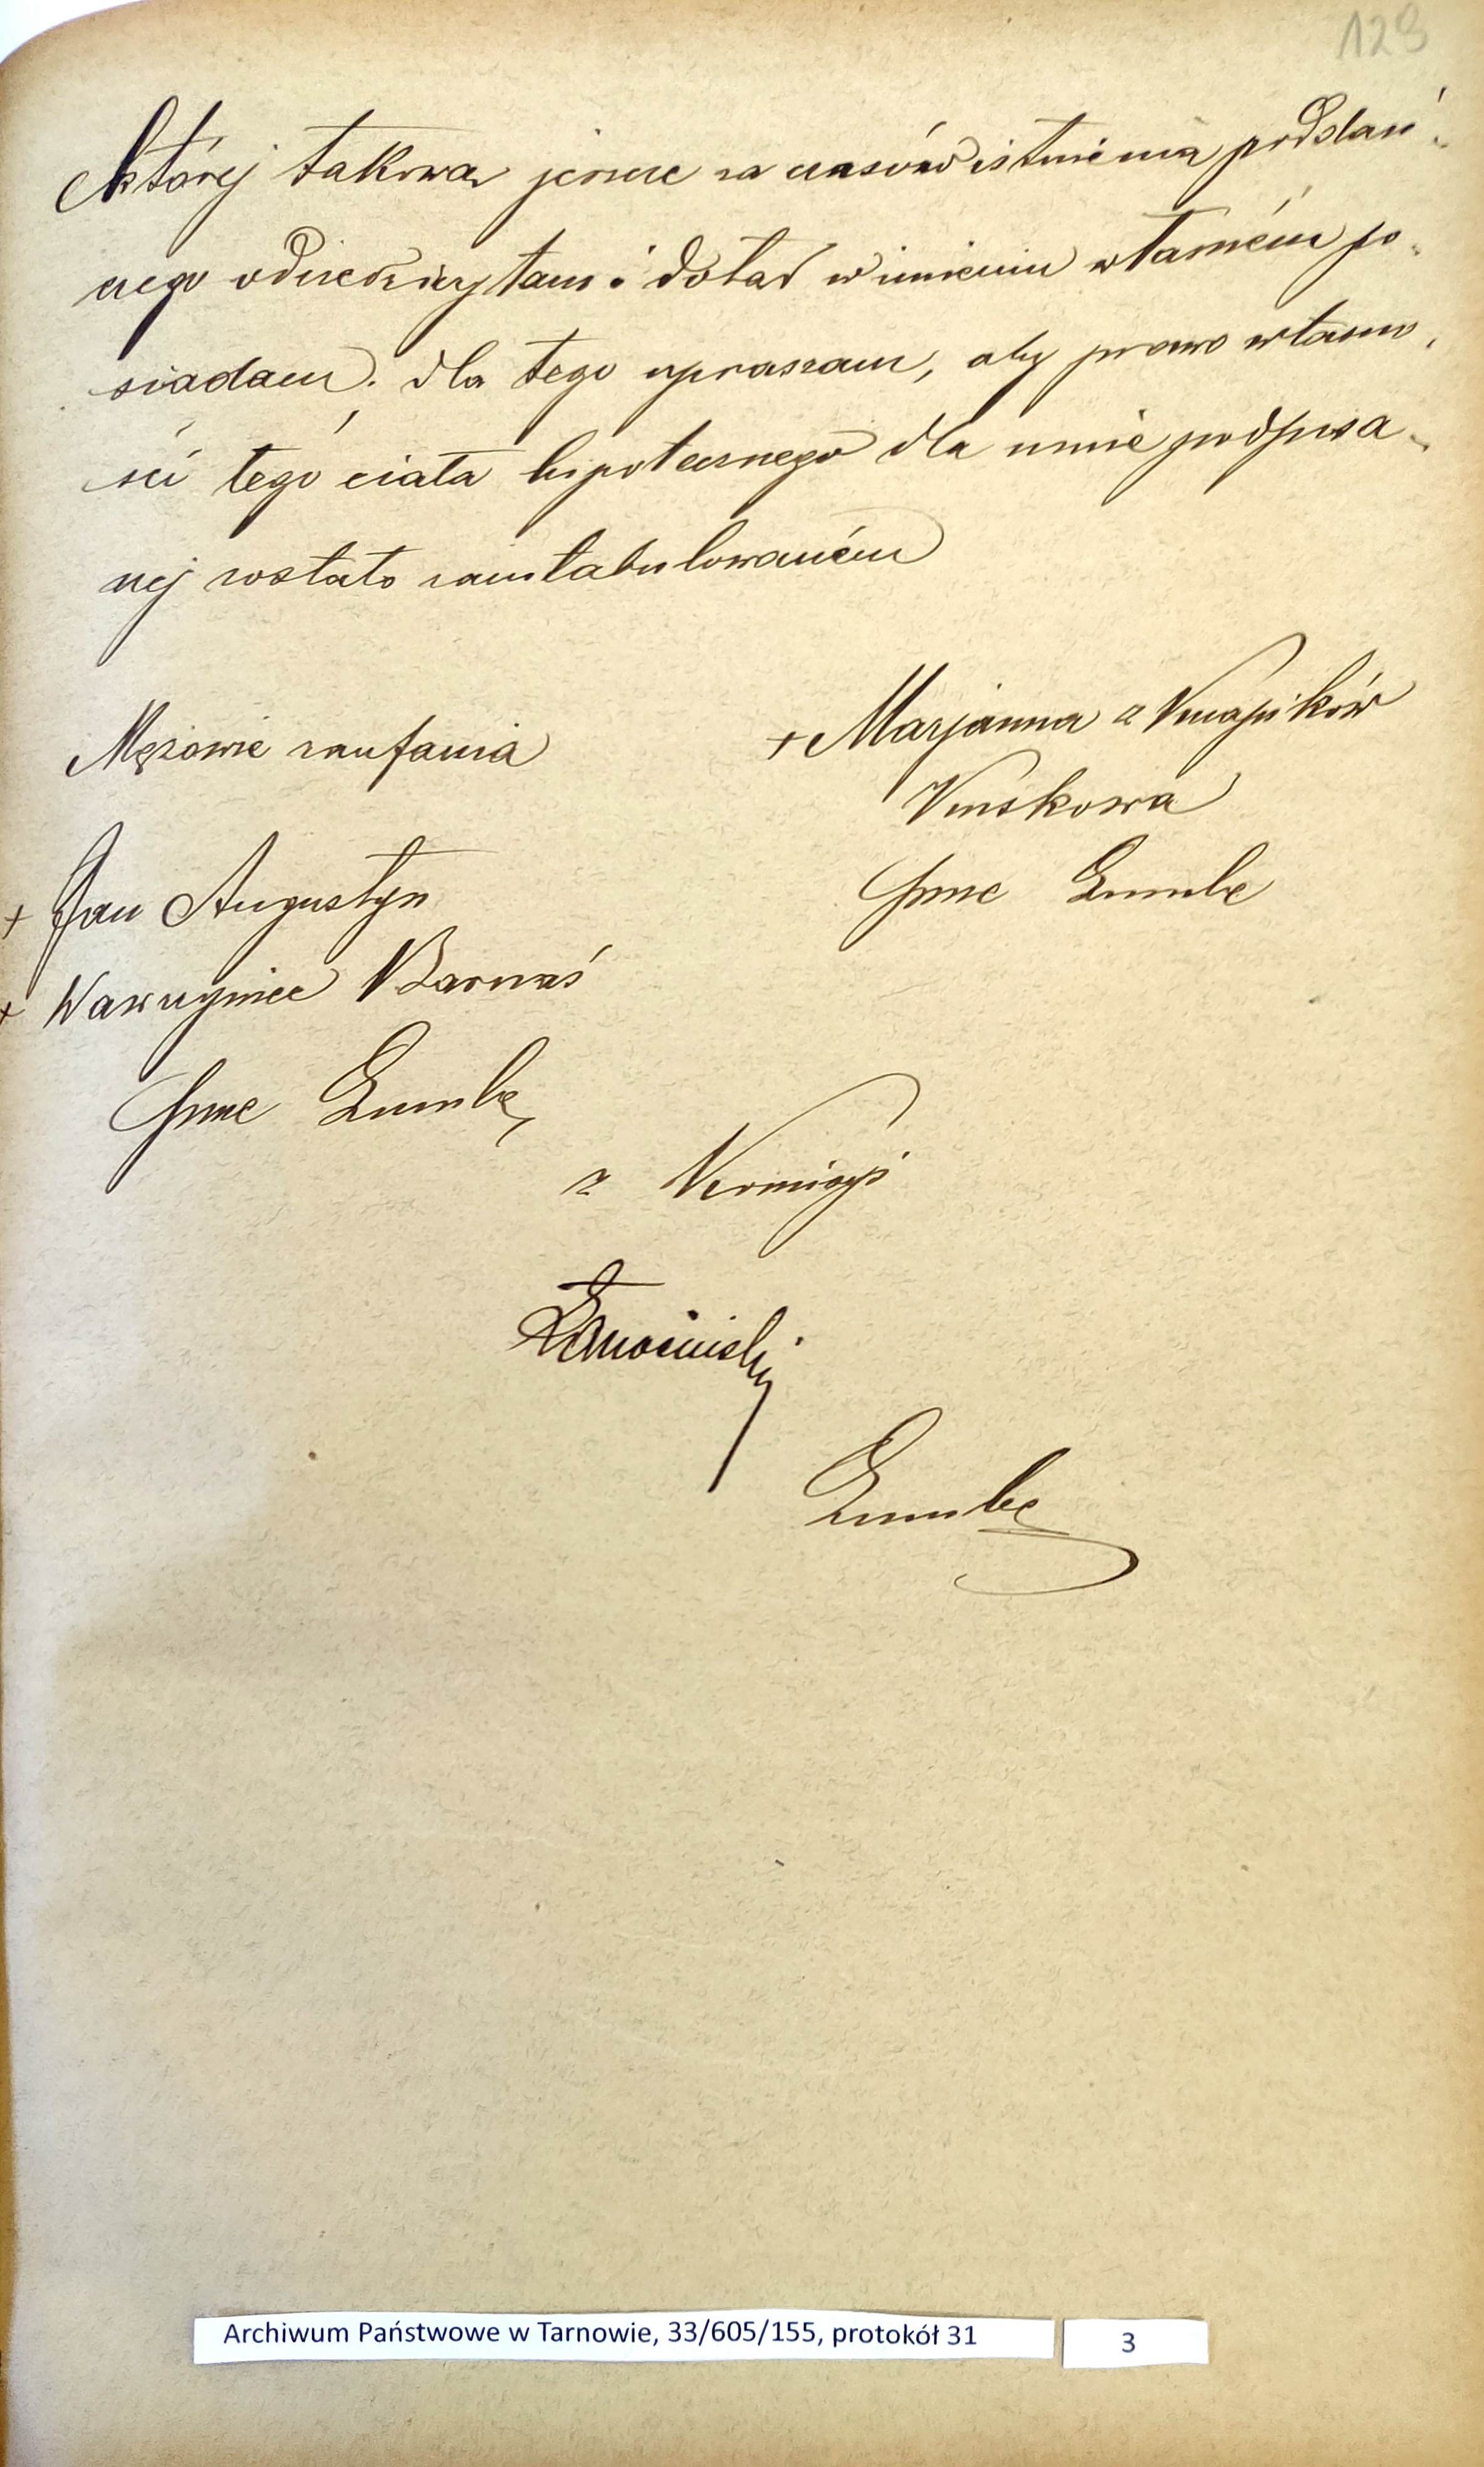 129
której takową jeszcze za czasów istnienia poddań-
czego odziedziczyłam i dotąd w imieniu własném po-
siadam. dla tego upraszam, aby prawo własno-
ści tego ciała hipotecznego dla mnie podpisa-
nej zostało zaintabulowaném
Mężowie zaufania
+ Marjanna z Knapików
Kuskowa
+ Jan Augustyn
+ Wawrzyniec Barnaś
z Komisyi
Archiwum Państwowe w Tarnowie, 33/605/155, protokół 31
3